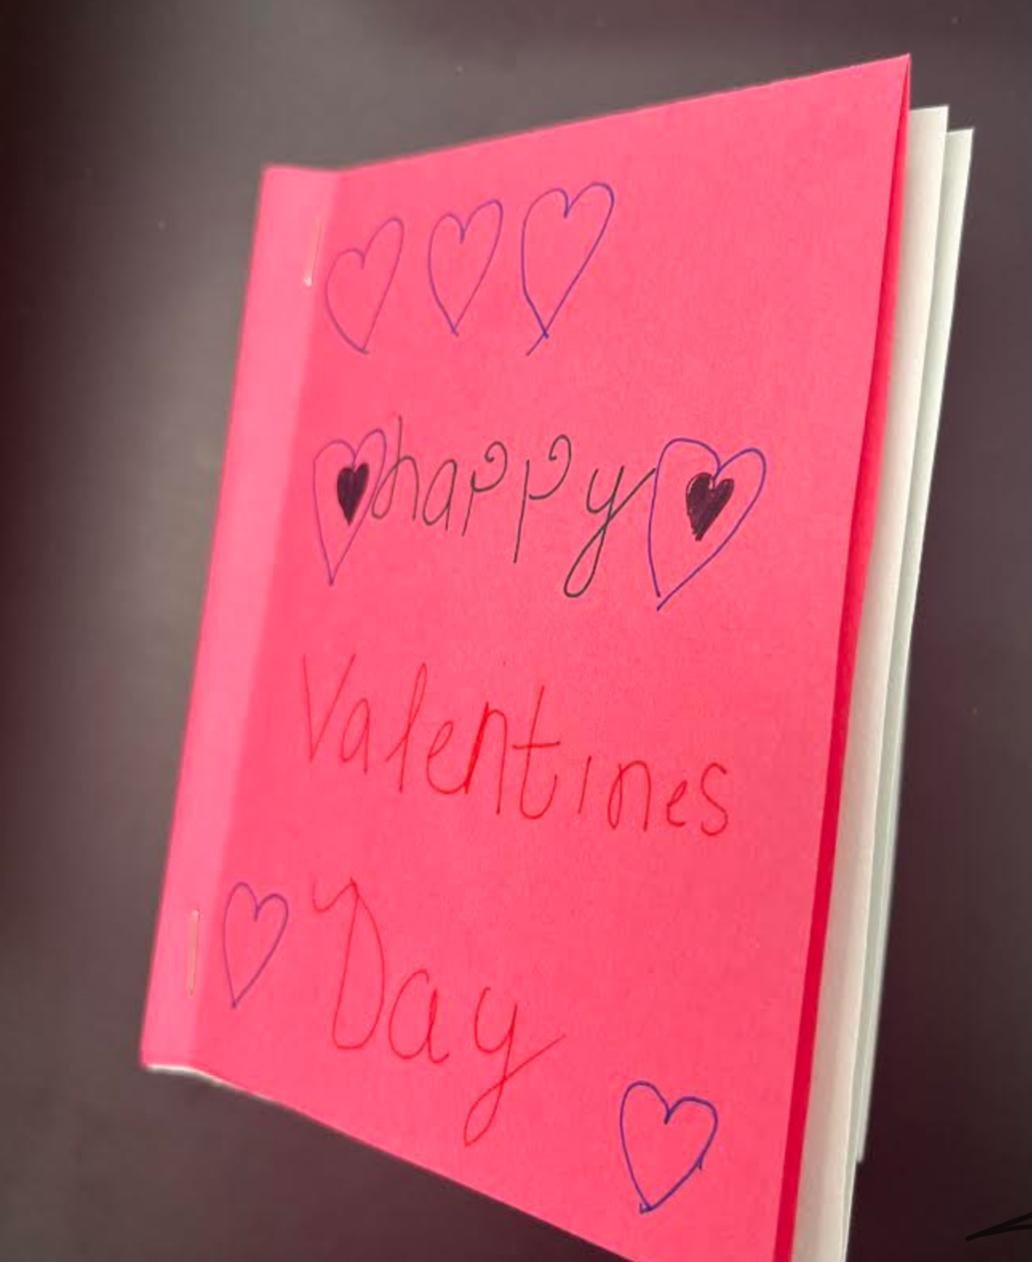 happy
Valentines
Day